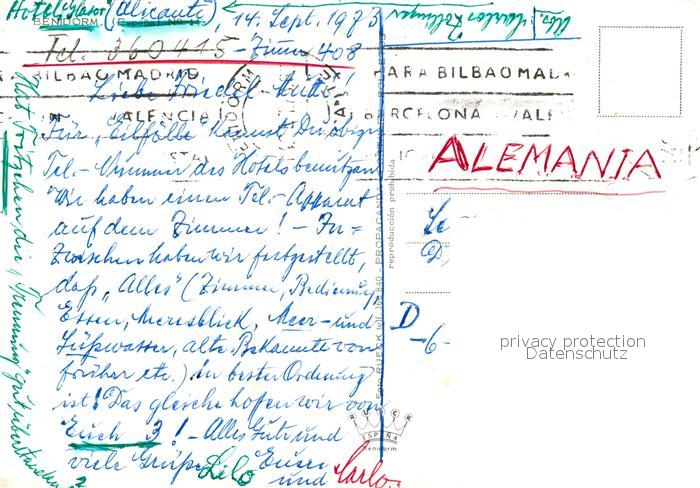 Hotel (Alicante)
BENIDORM
14. Sept. 1983
Tel. 360415 - Zimm. 408
BILBAO MADRID
VALENCIA
PARA BILBAO MAD
BARCELONA VALE
Liebe Friedel-Mutti!
Für "Eilfälle" kannst Du obige
Tel.-Nummer des Hotels benützen
Wir haben einen Tel.-Apparat
auf dem Zimmer! - In=
zwischen haben wir festgestellt,
daß "Alles" (Zimmer, Bedienung,
Essen, Meeresblick, Meer- und
Süßwasser, alte Bekannte von
früher etc.) in bester Ordnung
ist! Das gleiche hoffen wir von
Euch 3! - Alles Gute und
viele Grüße Eure
Lilo und Carlo.
Hat Fritzchen die "Trennung" gut überstanden?
Abs.: Carlos
reproducción prohibida
ALEMANIA
D
-6-
RUECK
ESPAÑA
Benidorm
privacy protection
Datenschutz